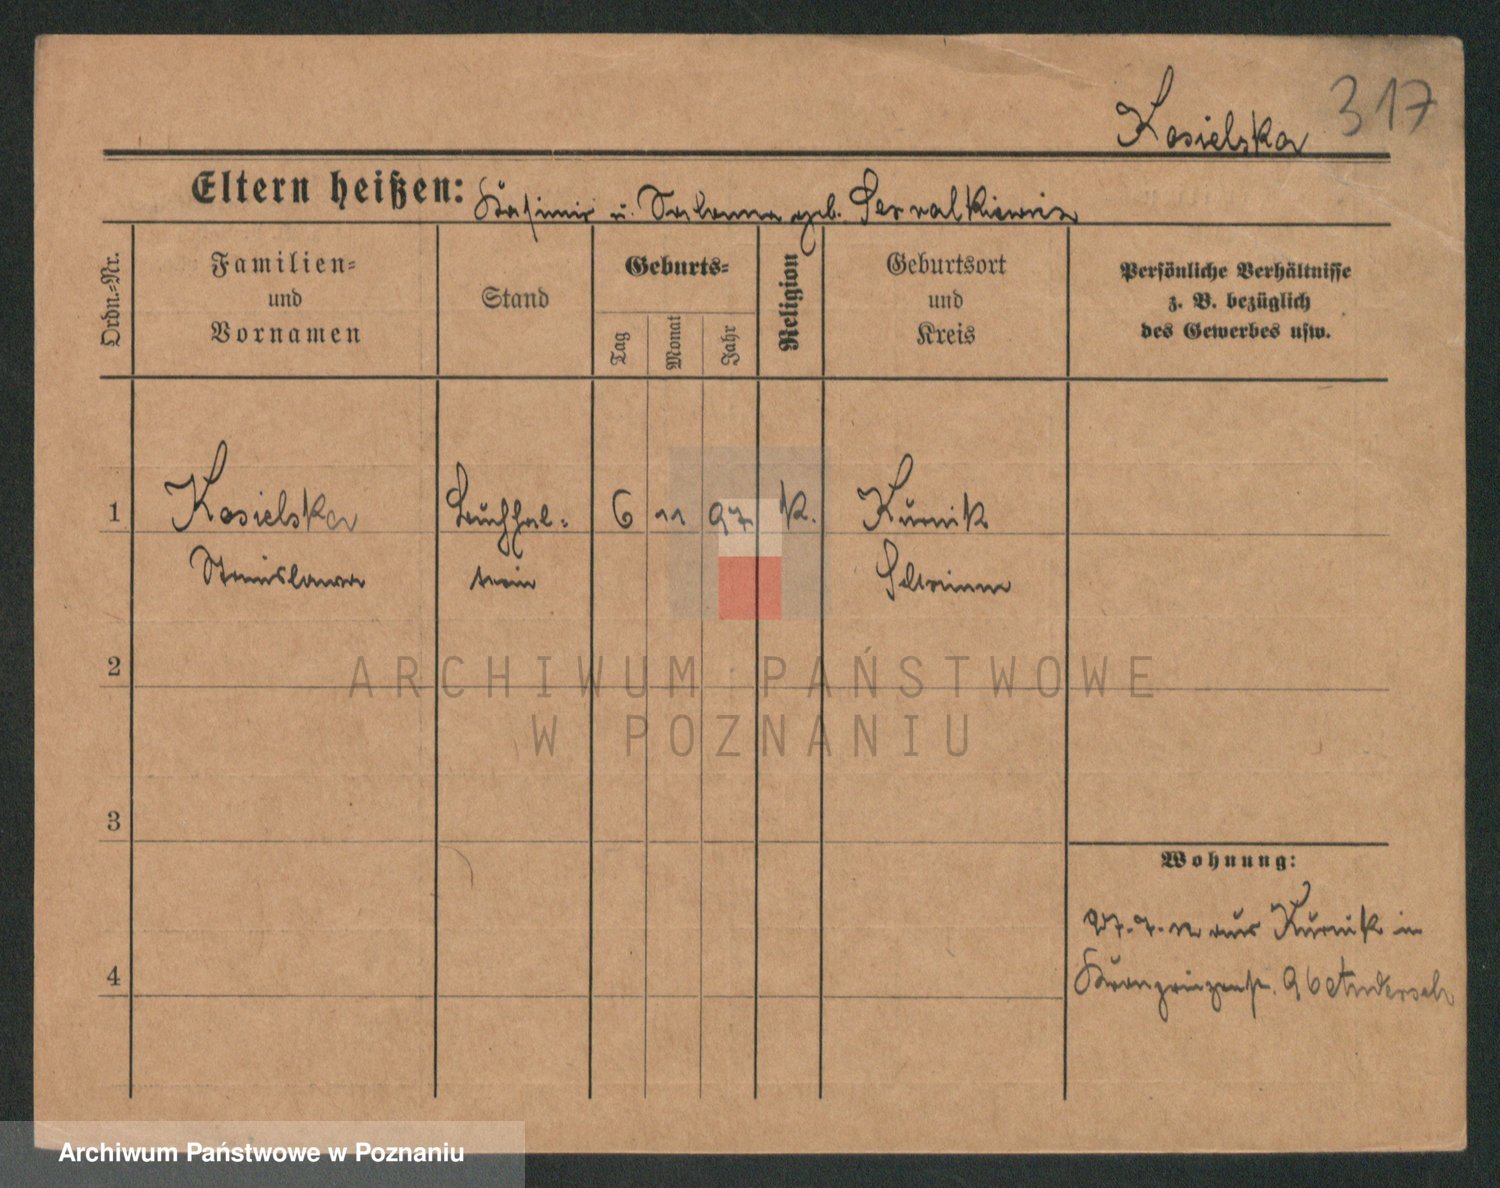 317
Kosielska
Eltern heißen: Kasimir u. Salomea geb.
Ordn.=Nr.
Familien=
und
Vornamen
Stand
Geburts=
Tag
Monat
Jahr
Religion
Geburtsort
und
Kreis
Persönliche Verhältnisse
z. B. bezüglich
des Gewerbes usw.
1
Kosielska
Buchhal=
6
11
97
K.
Kurnik
Stanislawa
terin
Schrimm
2
3
4
Wohnung:
aus Kurnik in
Kronprinzenstr. 96
ARCHIWUM PAŃSTWOWE
W POZNANIU
Archiwum Państwowe w Poznaniu